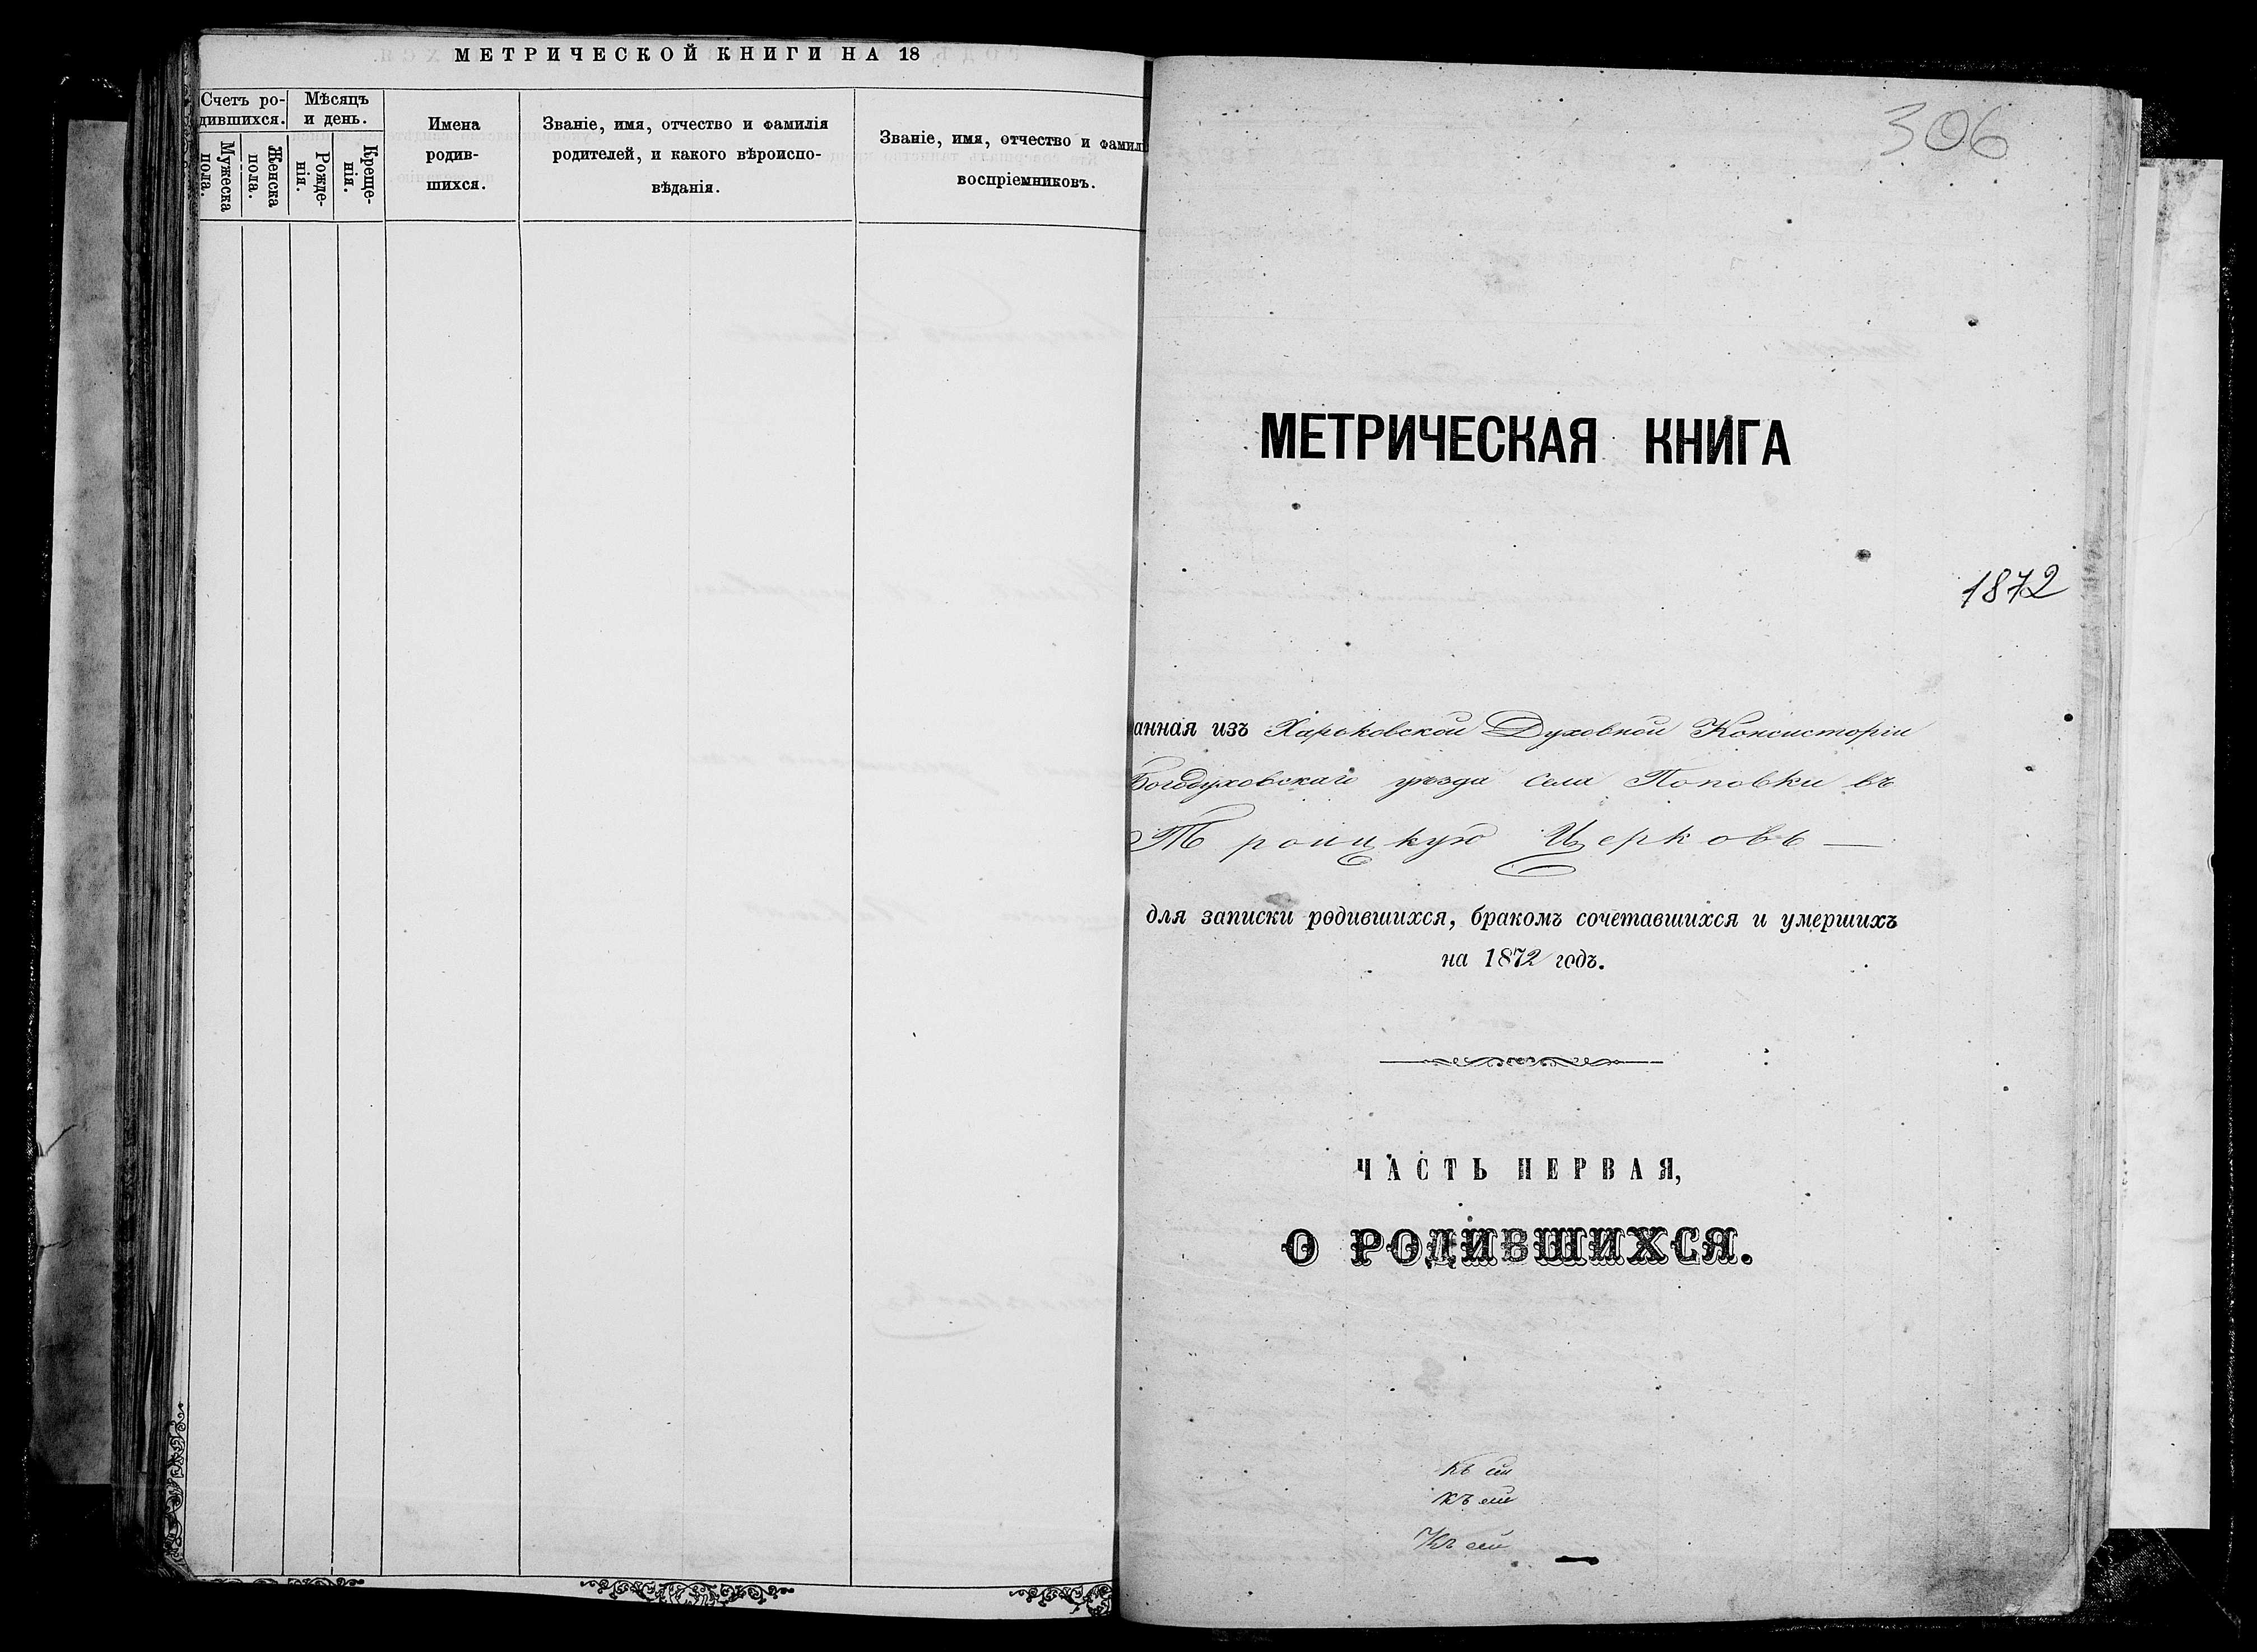 МЕТРИЧЕСКОЙ КНИГИ НА 18
Счетъ ро-
дившихся.
Мужеска
пола.
Женска
пола.
Мѣсяцъ
и день.
Рожде-
нія.
Креще-
нія.
Имена
родив-
шихся.
Званіе, имя, отчество и фамилія
родителей, и какого вѣроиспо-
вѣданія.
Званіе, имя, отчество и фамил
воспріемниковъ.
306
МЕТРИЧЕСКАЯ КНИГА
1872
анная изъ Харьковской Духовной Консисторіи
Богодуховскаго уѣзда села Поповки въ
Троицкую Церковь —
для записки родившихся, бракомъ сочетавшихся и умершихъ
на 1872 годъ.
ЧАСТЬ ПЕРВАЯ,
О РОДИВШИХСЯ.
Къ сей
къ сей
Къ сей